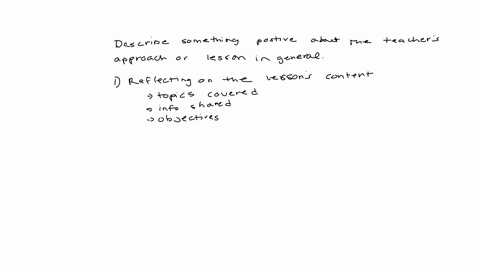 Describe something postive about the teacher's
approach or lesson in general.
1) Reflecting on the lesson's content
→ topics covered
→ info shared
→ objectives